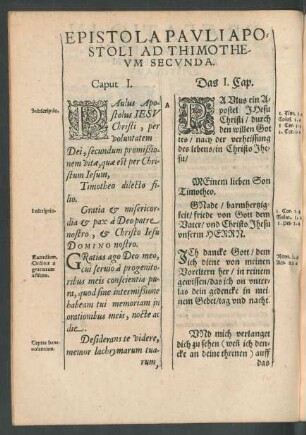 EPISTOLA PAVLI APO-
STOLI AD THIMOTHE-
VM SECVNDA.
Caput I.
Subscriptio.
PAulus Apo-
stolus IESV
Christi, per
voluntatem
Dei, secundum promissio-
nem vitæ, quæ est per Chri-
stum Iesum,
Timotheo dilecto fi-
lio.
Inscriptio.
Gratia & misericor-
dia & pax à Deo patre
nostro, & Christo Iesu
DOMINO nostro.
Exordium,
GRatias ago Deo meo,
cui seruio à progenito-
ribus meis conscientia pu-
ra, quod sine intermissione
habeam tui memoriam in
orationibus meis, nocte ac
die.
Desiderans te videre,
memor lachrymarum tua-
rum,
Das I. Cap.
A
PAulus ein A-
postel Jhesu
Christi / durch
den willen Got-
tes / nach der verheissung
des lebens in Christo Jhe-
su /
Meinem lieben Son
Timotheo.
GNade / barmhertzig-
keit / friede von Gott dem
Vater / vnd Christo Jhesu
vnserm HERRN.
Ich dancke Gott / dem
ich diene von meinen
Voreltern her / in reinem
gewissen / das ich on vnter-
las dein gedencke in mei-
nem Gebet / tag vnd nacht.
Vnd mich verlanget
dich zu sehen (wen ich den-
cke an deine threnen) auff
das